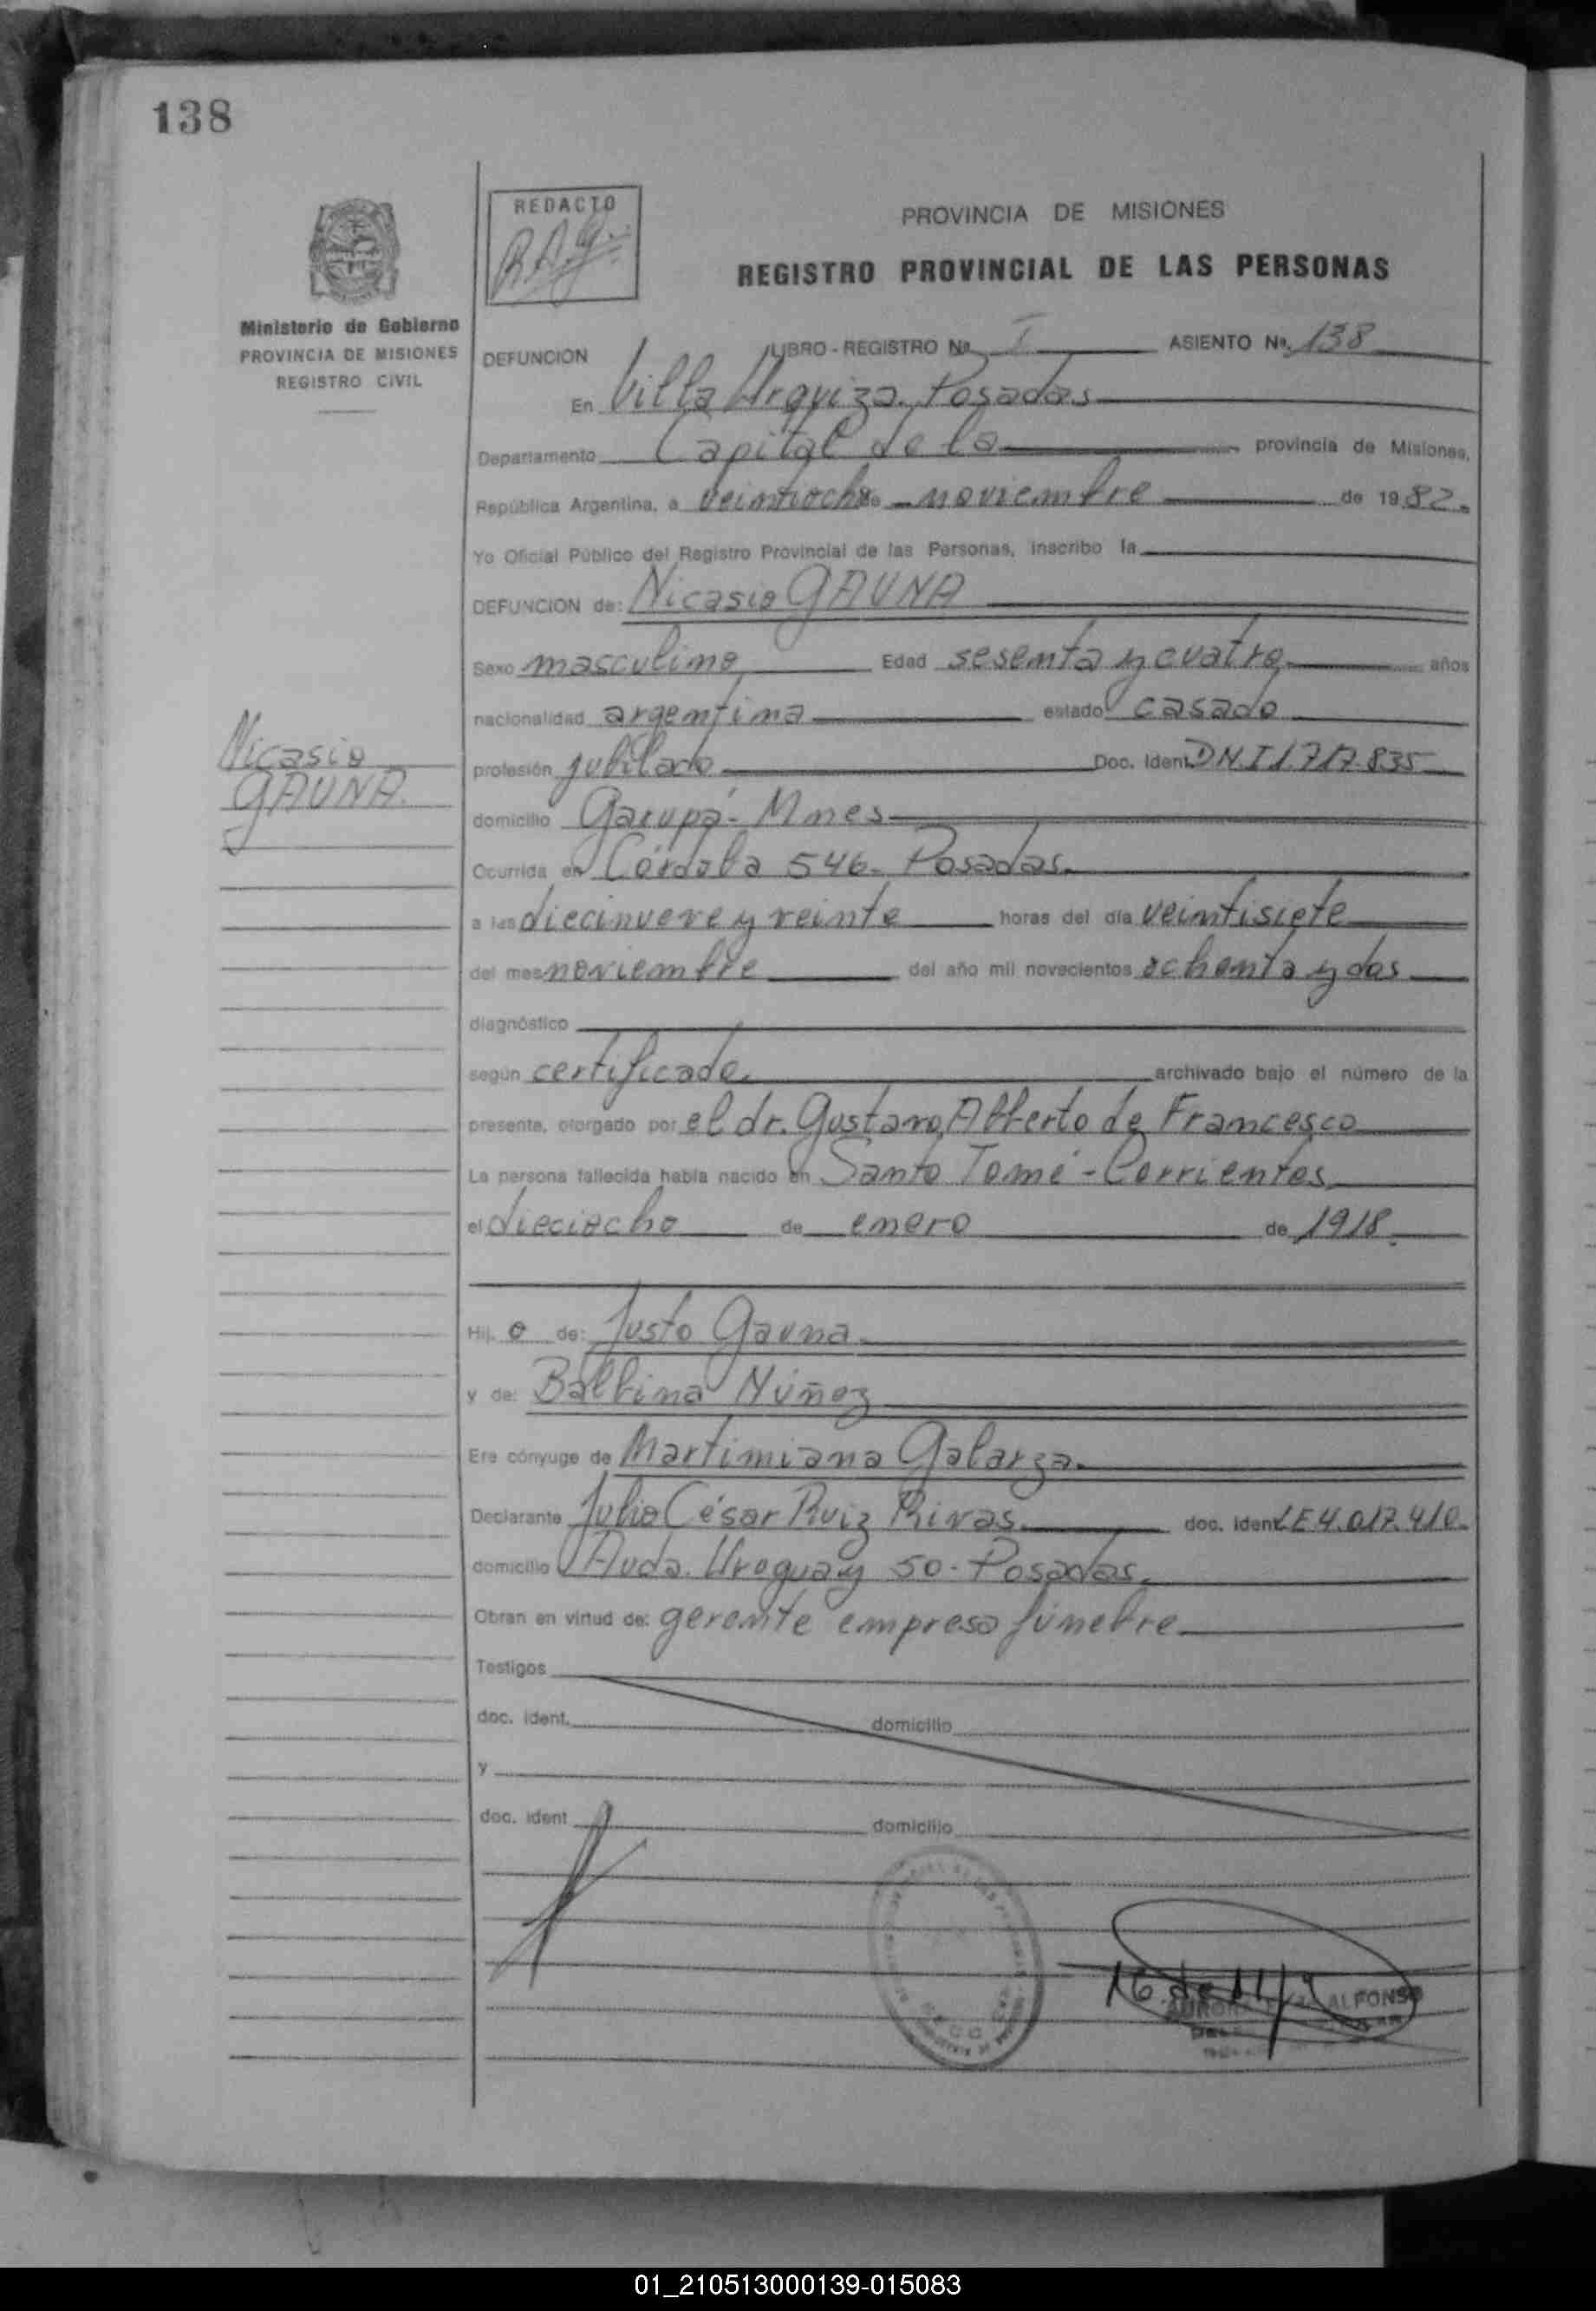 138
REDACTO
R.A.G.
PROVINCIA DE MISIONES
REGISTRO PROVINCIAL DE LAS PERSONAS
Ministerio de Gobierno
PROVINCIA DE MISIONES
REGISTRO CIVIL
DEFUNCION LIBRO - REGISTRO No. I ASIENTO No. 138
En Villa Urquiza. Posadas
Departamento Capital de la provincia de Misiones,
República Argentina, a veintiocho de noviembre de 1982.
Yo Oficial Público del Registro Provincial de las Personas, inscribo la
DEFUNCION de: Nicasio GAUNA
Sexo masculino Edad sesenta y cuatro años
nacionalidad argentina estado casado
Nicasio
GAUNA
profesión jubilado Doc. Ident. DNI 1.717.835
domicilio Garupá - Mnes
Ocurrida en Córdoba 546. Posadas.
a las diecinueve y veinte horas del día veintisiete
del mes noviembre del año mil novecientos ochenta y dos
diagnóstico
según certificado. archivado bajo el número de la
presente, otorgado por el dr. Gustavo Alberto de Francesco
La persona fallecida había nacido en Santo Tomé - Corrientes
el dieciocho de enero de 1918.
Hij o de: Justo Gauna
y de: Balbina Núñez
Era cónyuge de Martimiana Galarza.
Declarante Julio César Ruiz Rivas doc. ident. LE 4.017.410
domicilio Avda. Uruguay 50 - Posadas.
Obran en virtud de: gerente empresa fúnebre
Testigos
doc. ident. domicilio
y
doc. ident domicilio
ALFONSO
01_210513000139-015083